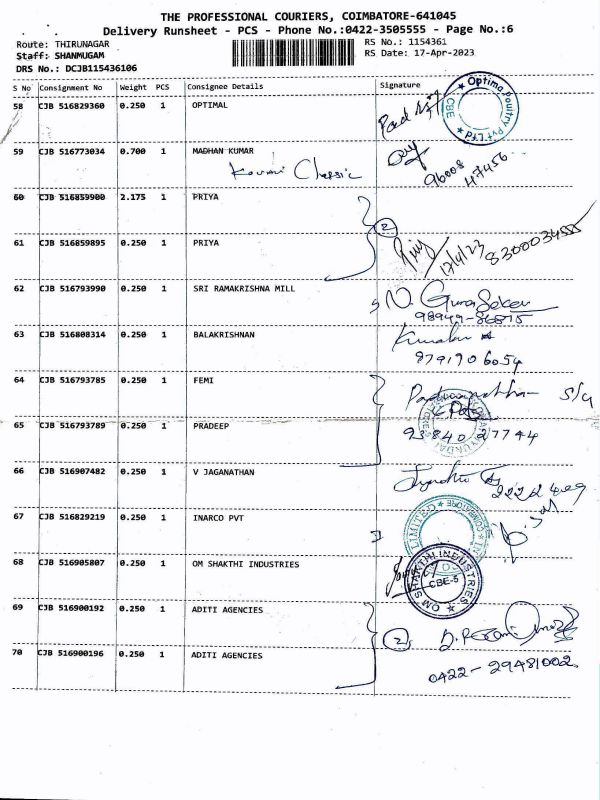 THE PROFESSIONAL COURIERS, COIMBATORE-641045
Delivery Runsheet - PCS - Phone No.:0422-3505555 - Page No.:6
Route: THIRUNAGAR
RS No.: 1154361
Staff: SHANMUGAM
RS Date: 17-Apr-2023
DRS No.: DCJB115436106
S No Consignment No Weight PCS Consignee Details Signature
58 CJB 516829360 0.250 1 OPTIMAL
Optima Poultry Pvt Ltd
CBE
59 CJB 516773034 0.700 1 MADHAN KUMAR
96008
47456
60 CJB 516859900 2.175 1 PRIYA
2
61 CJB 516859895 0.250 1 PRIYA
17/4/23
62 CJB 516793990 0.250 1 SRI RAMAKRISHNA MILL
98949-86875
63 CJB 516808314 0.250 1 BALAKRISHNAN
8791906054
64 CJB 516793785 0.250 1 FEMI
65 CJB 516793789 0.250 1 PRADEEP
93840 27744
66 CJB 516907482 0.250 1 V JAGANATHAN
67 CJB 516829219 0.250 1 INARCO PVT
LIMITED
68 CJB 516905807 0.250 1 OM SHAKTHI INDUSTRIES
OM SHAKTHI INDUSTRIES
CBE-5
69 CJB 516900192 0.250 1 ADITI AGENCIES
2
70 CJB 516900196 0.250 1 ADITI AGENCIES
0422-29481002